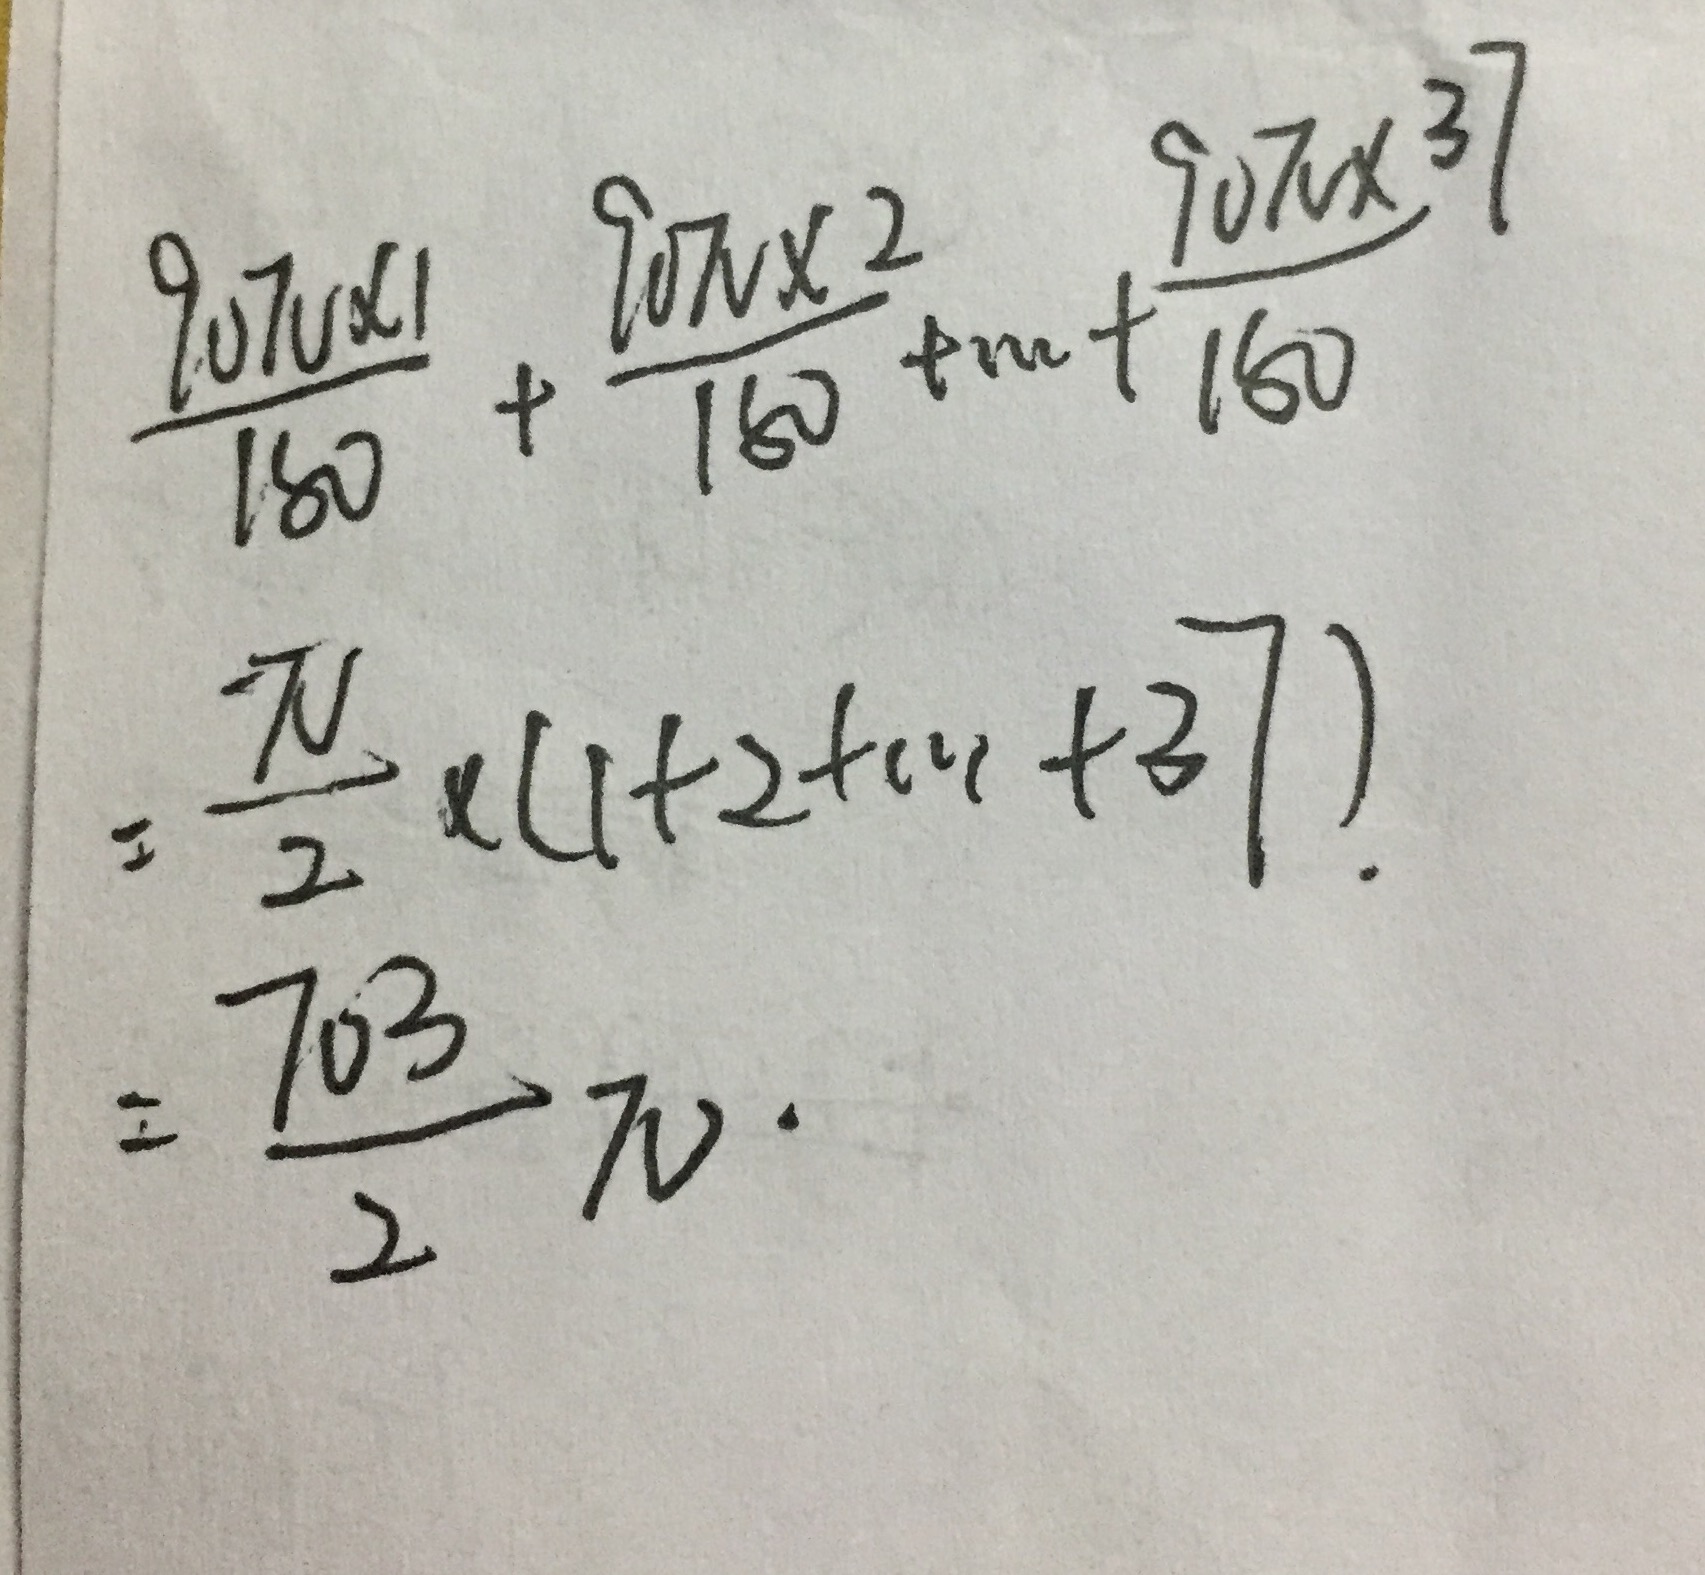 90π×1/180 + 90π×2/180 + ... + 90π×37/180
= π/2 ×(1+2+...+37).
= 703/2 π.